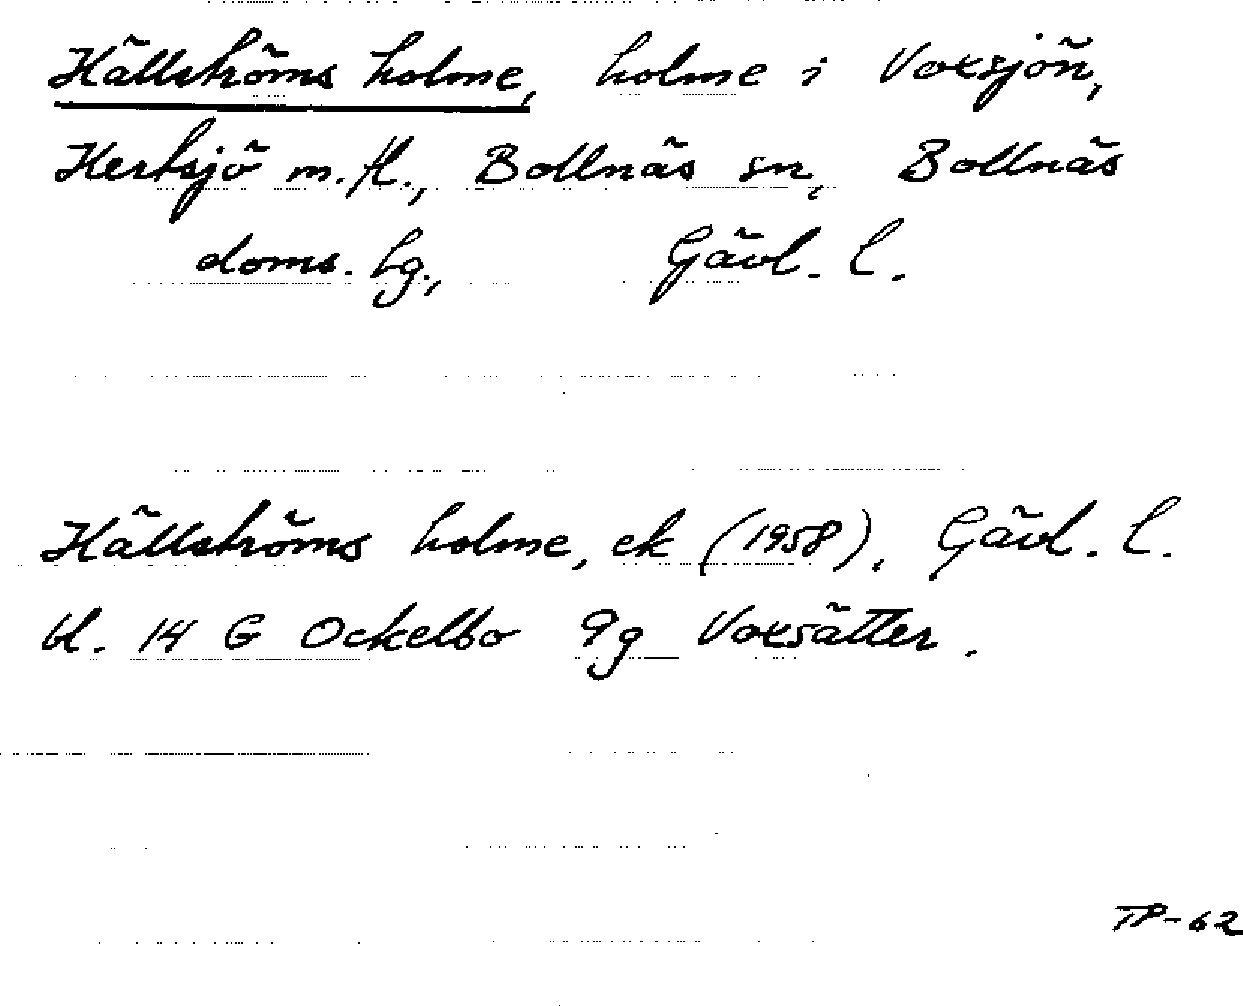 Hällströms holme, holme i Voxsjön,
Hertsjö m. fl., Bollnäs sn, Bollnäs
doms. hg., Gävl. l.
Hällströms holme, ek (1958), Gävl. l.
bl. 14 G Ockelbo 9g Voxsätter.
TP-62